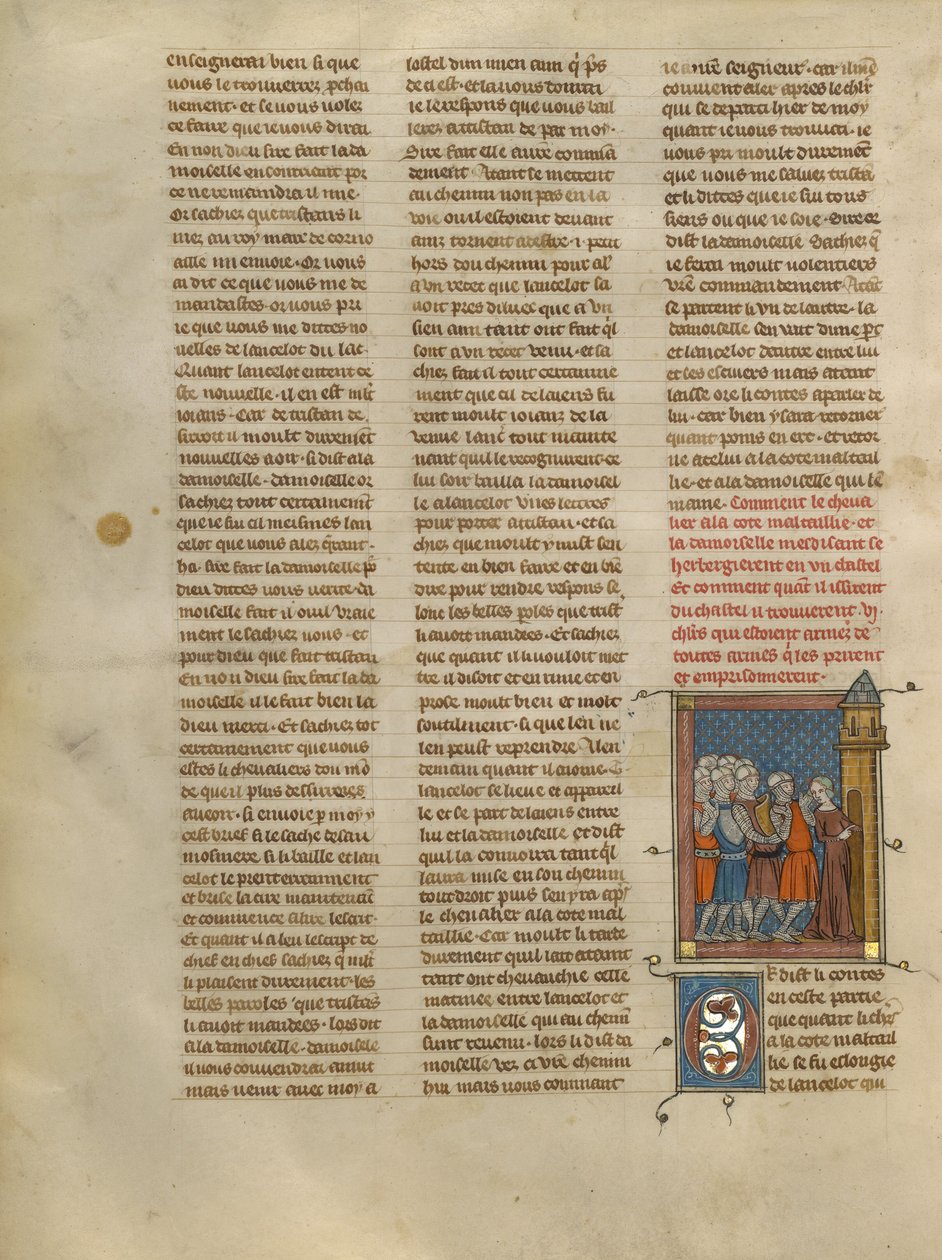 enseignerai bien si que
vous le trouverrez pchai
nement · et se vous volez
ce faire que ie vous dirai
En non dieu sire fait la da
moiselle en couvent por
ce ne remaindra il mie ·
Or sachiez que tristans li
niez au roy marc de corno
aille mi envoie · Or vous
ai dit ce que vous me de
mandastes · or vous pri
ie que vous me dittes no
uelles de lancelot du lac ·
Quant lancelot entent ce
ste nouvelle · il en est mlt
ioians · Car de tristan de
sirroit il moult durement
nouvelles a oir · si dist a la
damoiselle · damoiselle or
sachiez tout certainemt
que ie sui cil meismes lan
celot que vous alez querant ·
ha · sire fait la damoiselle por
dieu dittes vous verite · da
moiselle fait il oui vraie
ment le sachiez vous · et
pour dieu que fait tristan
En non dieu sire fait la da
moiselle il le fait bien la
dieu merci · Et sachiez tot
certainement que vous
estes li chevaliers dou mo
de que il plus desirrers
aueoir · si envoie p moy
cest brief si le sache de sau
mosniere si li baille et lan
celot le prent erranment
et brise la cire maintenat
et commence a lire lescrit ·
Et quant il a leu lescript de
chief en chief sachiez q mlt
li plaisent durement · les
belles paroles que tristas
li auoit mandees · lors dit
a la damoiselle · damoisele
il vous couvendra anuit
mais venir avec moy a
lostel dun mien ami q ps
de ci est · et la vous donrai
ie le respons que vous bail
lerez a tristan de par moy ·
Sire fait elle a vre comma
dement Atant se mettent
au chemin non pas en la
voie ou il estoient devant
ainz tornent a destre · i · petit
hors dou chemin pour al
a vn recet que lancelot sa
uoit pres diluec que a vn
sien ami tant ont fait ql
sont a vn recet venu · et sa
chiez fait il tout certaine
ment que cil de laiens fu
rent moult ioianz de la
venue lanc tout mainte
nant quil le recognurent · ce
lui soir bailla la damoisel
le a lancelot vnes lettres
pour porter a tristan · et sa
chiez que moult y mist sen
tente en bien faire et en bie
dire pour rendre respons se
lonc les belles poles que trist
li auoit mandees · Et sachiez
que quant il li vouloit met
tre il disoit et en rime et en
prose moult bien et molt
soutilment · si que len ne
len peust reprendre A len
demain quant il aiorne ·
lancelot se lieue et appareil
le et se part de laiens entre
lui et la damoiselle et dist
quil la convoira tant ql
laura mise en son chemin
tout droit puis sen yra aps
le chevalier a la cote mal
taillie · Car moult li tarde
durement quil lait ataint
tant ont chevauchie celle
matinee entre lancelot et
la damoiselle qui au chemi
sunt revenu · lors li dist da
moiselle vez ci vre chemin
hui mais vous commant
ie a nre seigneur · car il me
couvient aler apres le chlr
qui se departi hier de moy
quant ie vous trouvai · ie
vous pri moult durement
que vous me saluez trista
et li dittes que ie sui tous
siens ou que ie soie · Sire or
dist la damoiselle sachiez q
ie ferai moult volentiers
vre commandement Atat
se partent li vn de lautre · la
damoiselle sen vait dune pt
et lancelot dautre entre lui
et ses escuiers mais atant
laisse ore li contes a parler de
lui · car bien y sara retorner
quant poins en ert · et retor
ne a celui a la cote mal tail
lie · et a la damoiselle qui le
maine · Comment le cheua
lier a la cote maltaillie · et
la damoiselle mesdisant se
herbergierent en vn chastel
Et comment quant il issirent
du chastel il trouverent · vi ·
chlrs qui estoient armez de
toutes armes q les prirent
et emprisonnerent ·
Or dist li contes
en ceste partie
que quant li chrs
a la cote mal tail
lie se fu eslongie
de lancelot qui